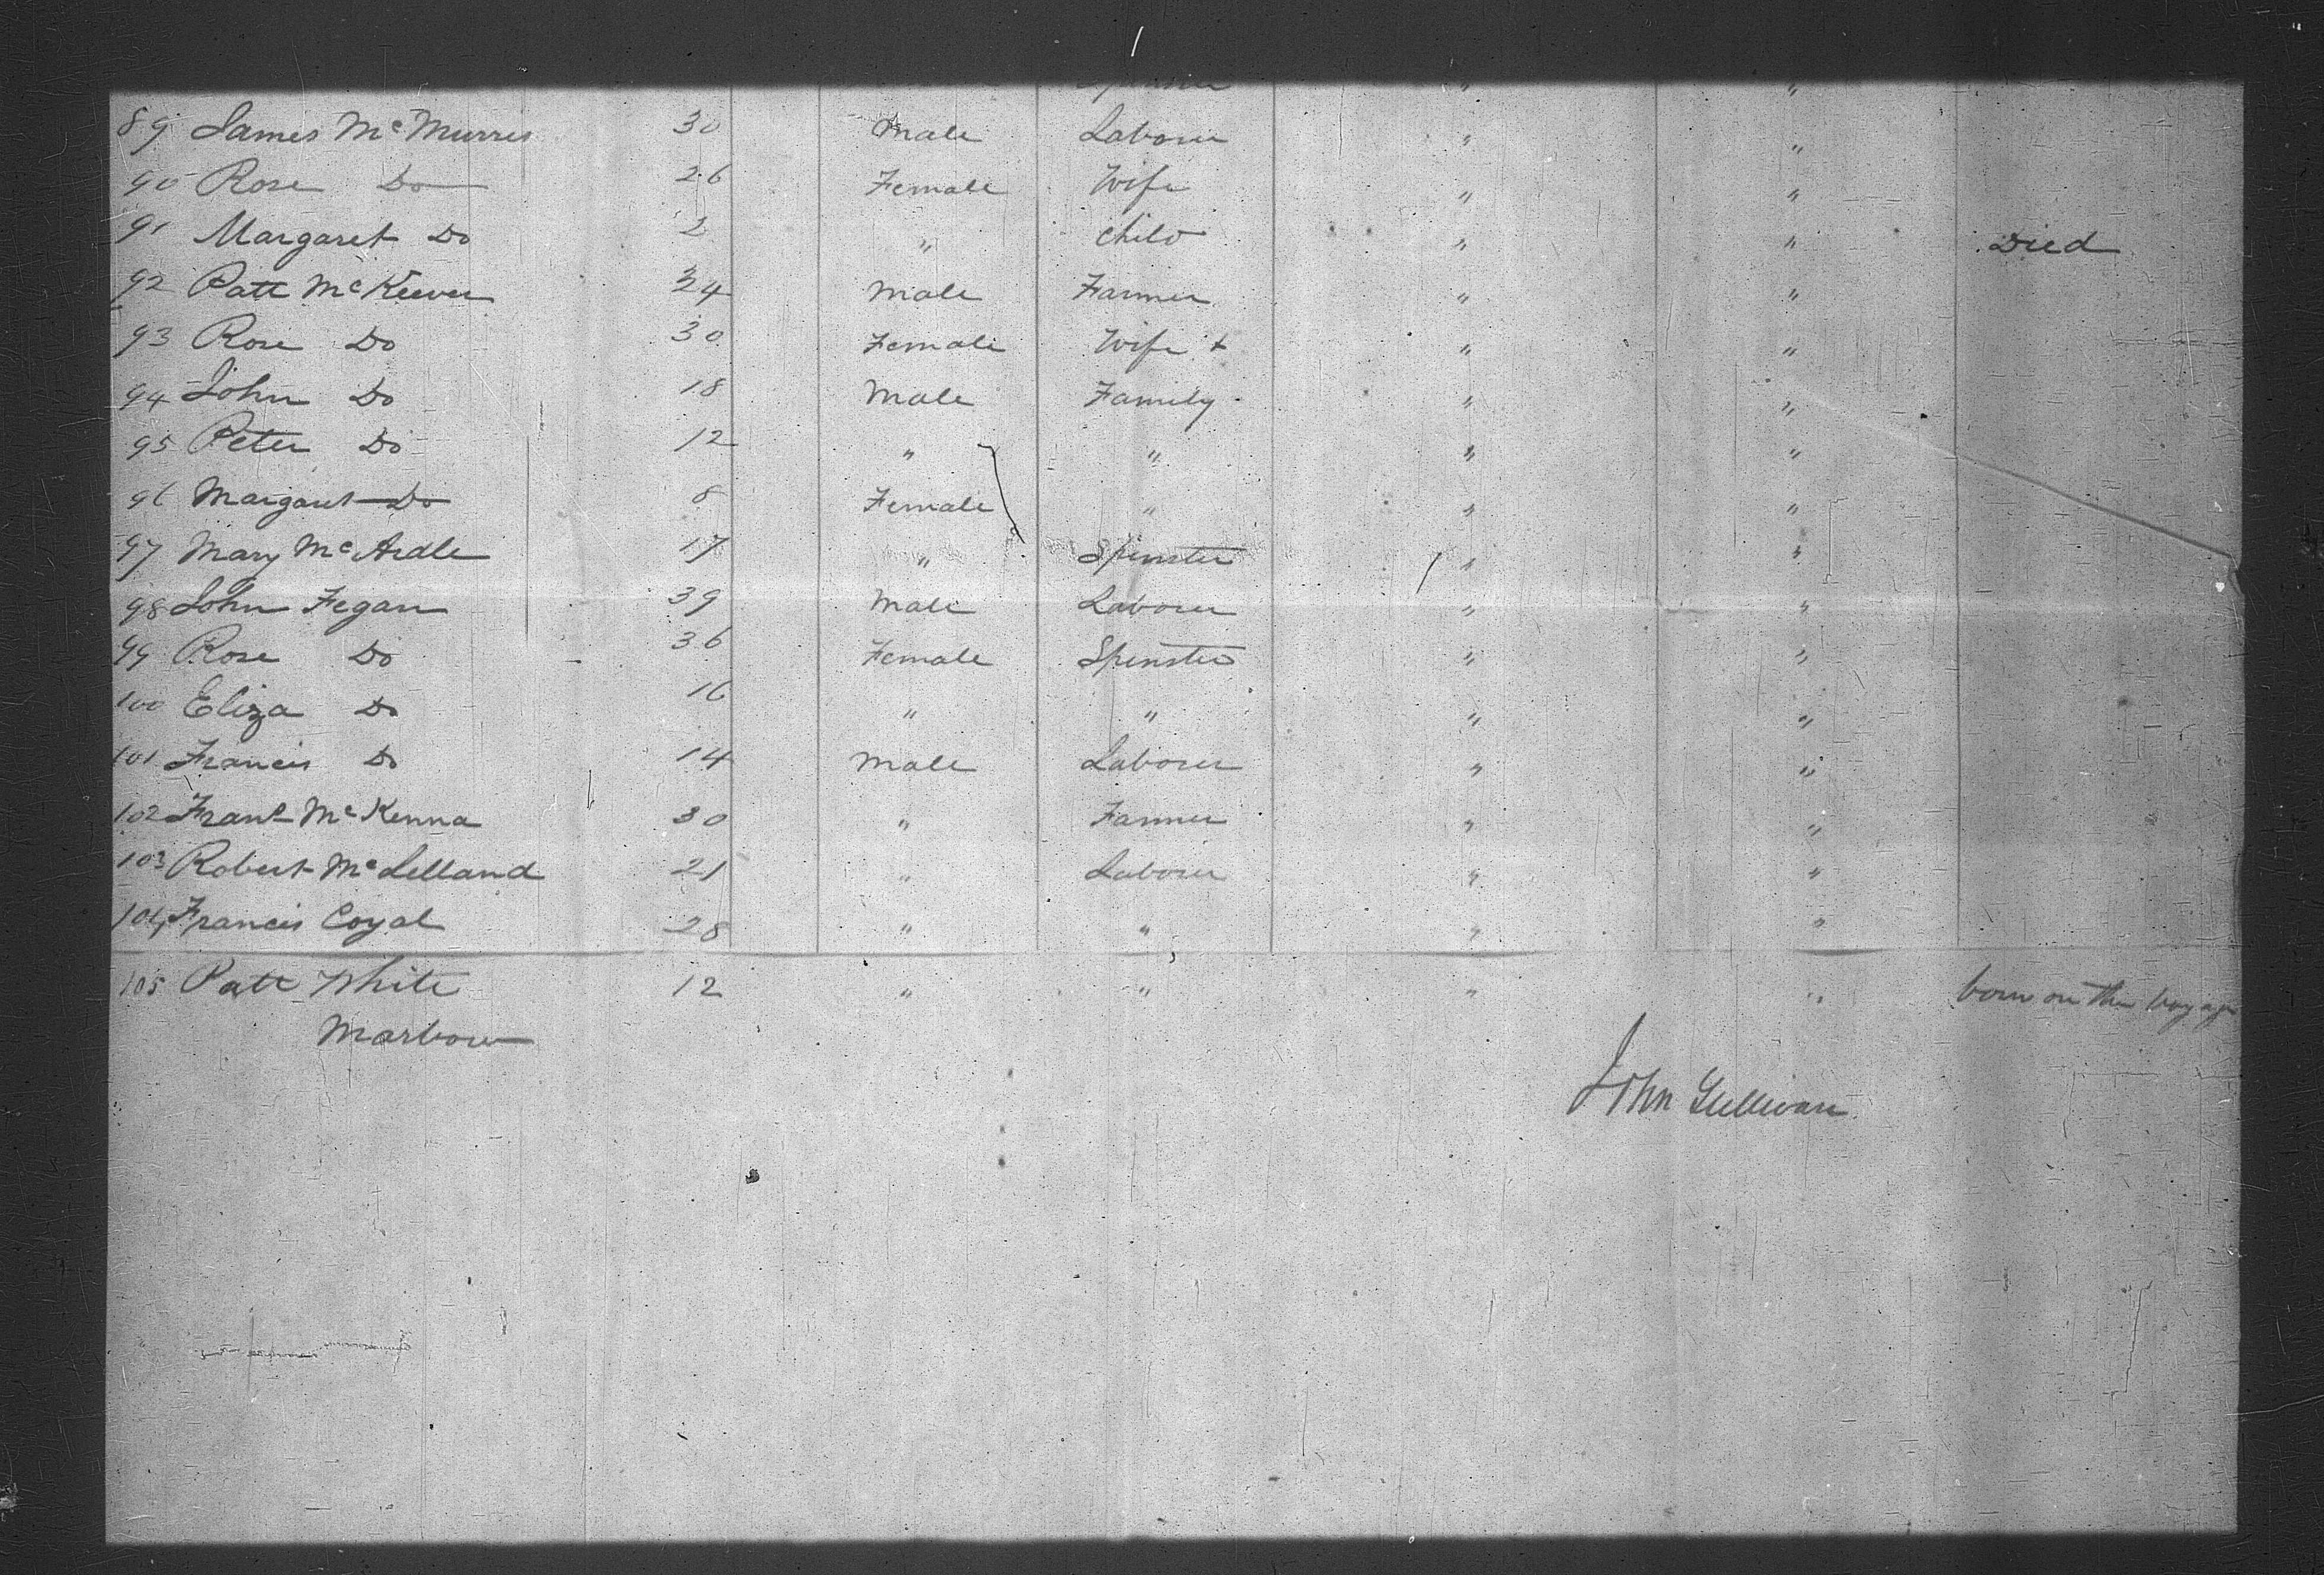 89 James McMurres 30 Male Laborer " "
90 Rose Do 26 Female Wife " "
91 Margaret Do 2 " Child " " Died
92 Patt McKeever 34 Male Farmer " "
93 Rose Do 30 Female Wife + " "
94 John Do 18 Male Family " "
95 Peter Do 12 " " " "
96 Margaret Do 8 Female " " "
97 Mary McArdle 17 " Spinster " "
98 John Fegan 39 Male Laborer " "
99 Rose Do 36 Female Spinster " "
100 Eliza Do 16 " " " "
101 Francis Do 14 Male Laborer " "
102 Frank McKenna 30 " Farmer " "
103 Robert McLelland 21 " Laborer " "
104 Francis Coyal 28 " " " "
105 Patt White 12 " " " " born on the Voyage
Marbow
John Sullivan